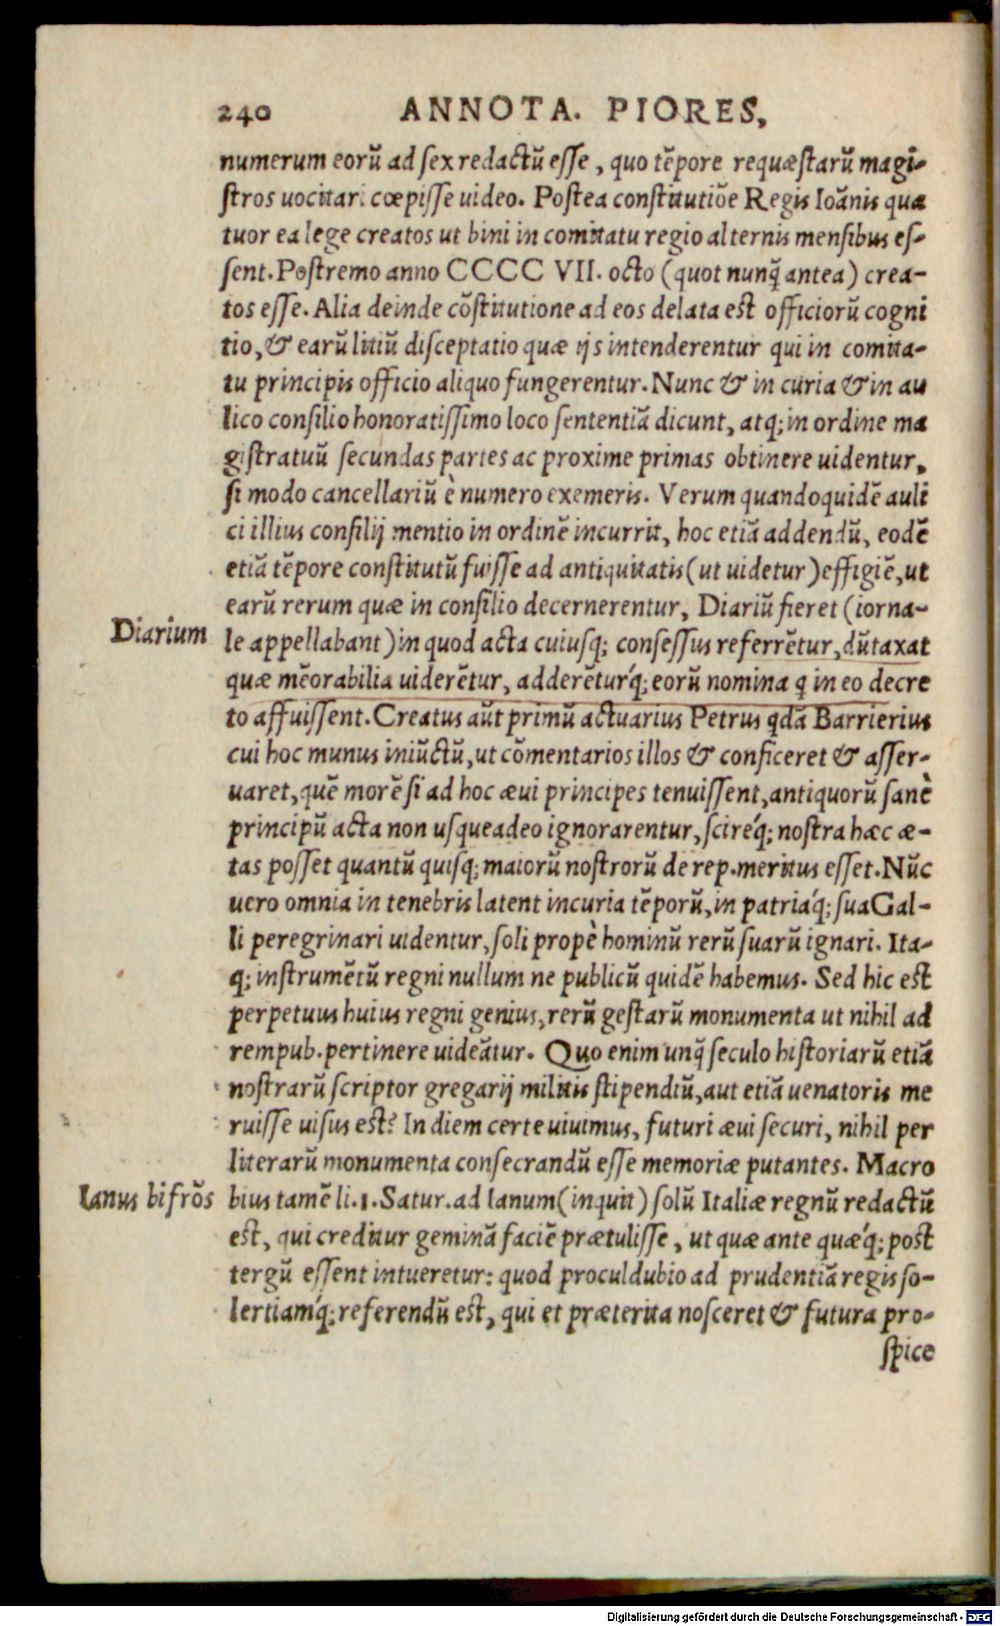 240 ANNOTA. PIORES,
numerum eorū ad sex redactū esse, quo tēpore requæstarū magi-
stros uocitari cœpisse uideo. Postea constitutiōe Regis Ioānis qua
tuor ea lege creatos ut bini in comitatu regio alternis mensibus es-
sent. Postremo anno CCCC VII. octo (quot nunq̄ antea) crea-
tos esse. Alia deinde cōstitutione ad eos delata est officiorū cogni
tio, & earū litiū disceptatio quæ ijs intenderentur qui in comita-
tu principis officio aliquo fungerentur. Nunc & in curia & in au
lico consilio honoratissimo loco sententiā dicunt, atq; in ordine ma
gistratuū secundas partes ac proxime primas obtinere uidentur,
si modo cancellariū è numero exemeris. Verum quandoquidē auli
ci illius consilij mentio in ordinē incurrit, hoc etiā addendū, eodē
etiā tēpore constitutū fuisse ad antiquitatis (ut uidetur) effigiē, ut
earū rerum quæ in consilio decernerentur, Diariū fieret (iorna-
Diarium
le appellabant) in quod acta cuiusq; consessus referrētur, dūtaxat
quæ mēorabilia uiderētur, adderēturq́; eorū nomina q in eo decre
to affuissent. Creatus aūt primū actuarius Petrus qdā Barrierius
cui hoc munus iniūctū, ut cōmentarios illos & conficeret & asser-
uaret, quē morē si ad hoc æui principes tenuissent, antiquorū sanè
principū acta non usqueadeo ignorarentur, scireq́; nostra hæc æ-
tas posset quantū quisq; maiorū nostrorū de rep. meritus esset. Nūc
uero omnia in tenebris latent incuria tēporū, in patriaq́; sua Gal-
li peregrinari uidentur, soli propè hominū rerū suarū ignari. Ita-
q; instrumētū regni nullum ne publicū quidē habemus. Sed hic est
perpetuus huius regni genius, rerū gestarū monumenta ut nihil ad
rempub. pertinere uideātur. Quo enim unq̄ seculo historiarū etiā
nostrarū scriptor gregarij militis stipendiū, aut etiā uenatoris me
ruisse uisus est? In diem certe uiuimus, futuri æui securi, nihil per
literarū monumenta consecrandū esse memoriæ putantes. Macro
Ianus bifrōs
bius tamē li. 1. Satur. ad Ianum (inquit) solū Italiæ regnū redactū
est, qui creditur geminā faciē prætulisse, ut quæ ante quæq́; post
tergū essent intueretur: quod proculdubio ad prudentiā regis so-
lertiamq́; referendū est, qui et præterita nosceret & futura pro-
spice
Digitalisierung gefördert durch die Deutsche Forschungsgemeinschaft - DFG